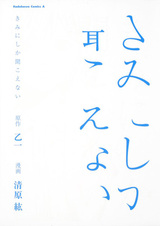 Kadokawa Comics A
きみにしか
聞こえない
きみにしか聞こえない
原作 乙一
漫画 清原紘